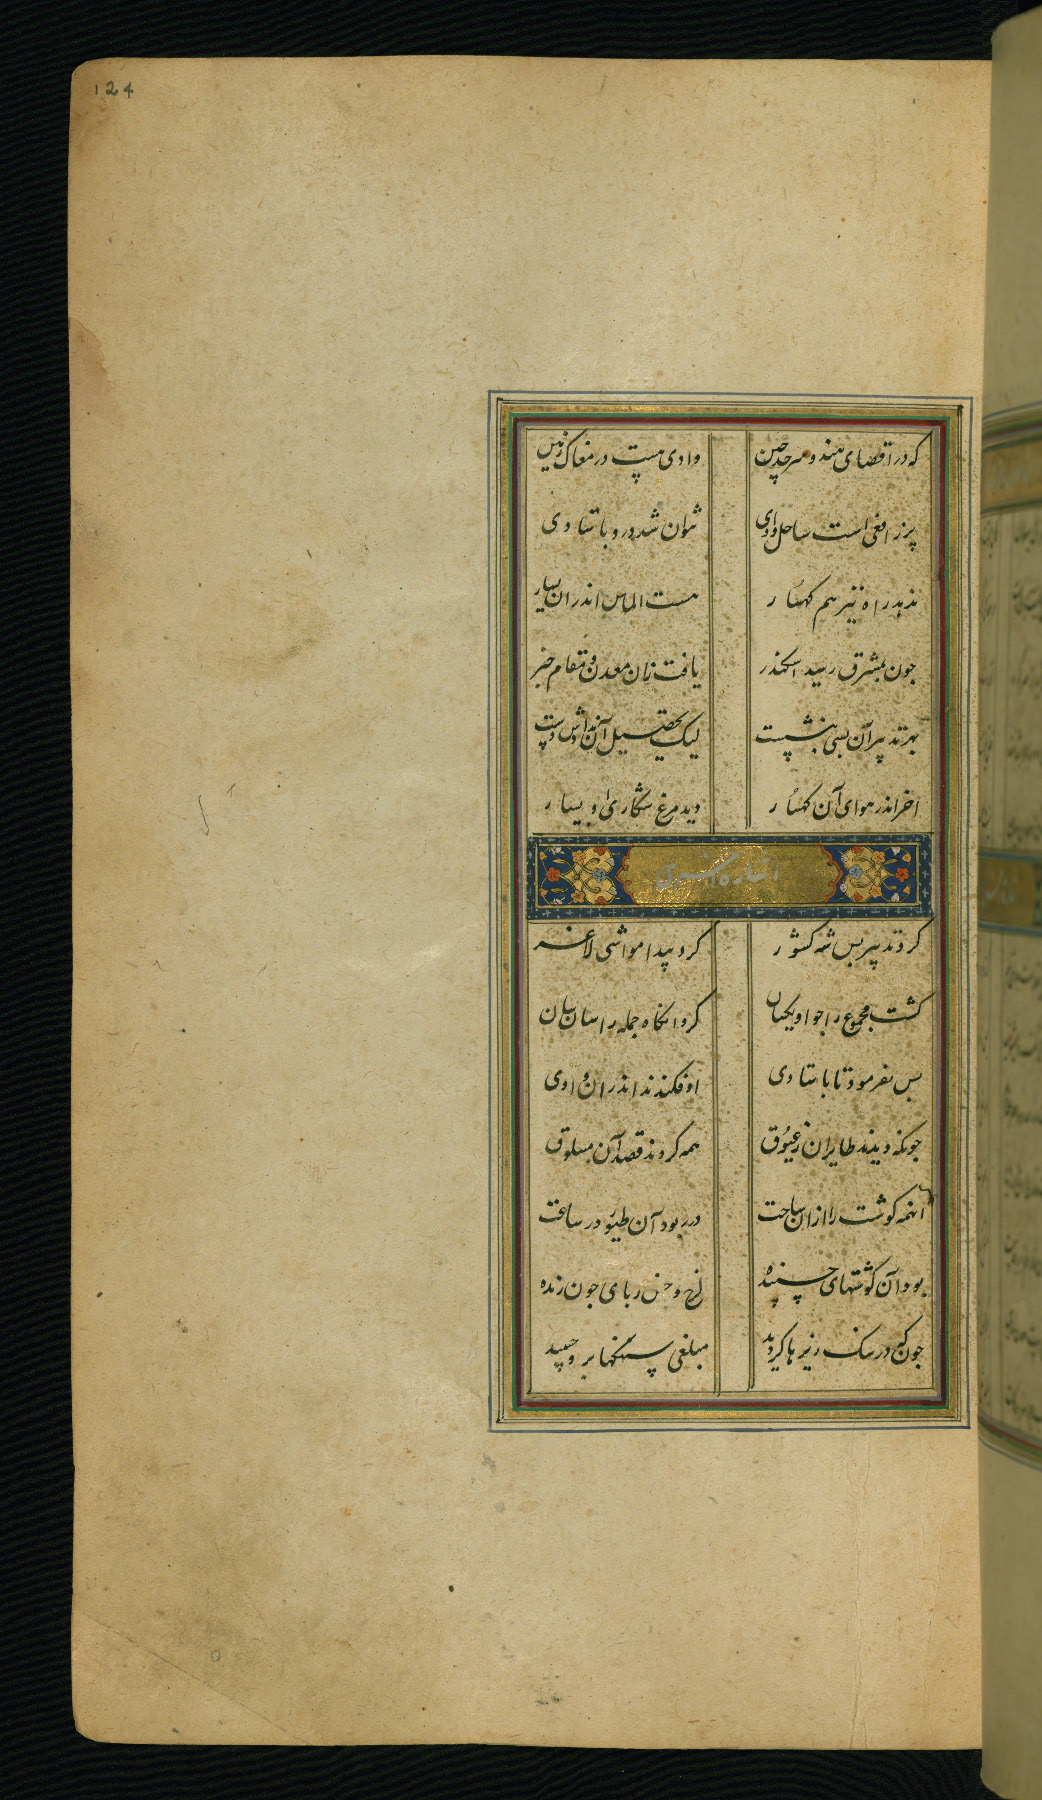 124
که در اقصای هند و سرحد چین وادی هست در مغاک زمین
پر ز افعی است ساحل وادی نتوان شد درو باشادی
ندهد راه نیز هم کهسار هست الماس اندران بسیار
چون بمشرق رسید اسکندر یافت زان معدن و مقام خبر
بهر تدبیر آن بسی بنشست لیک تحصیل آن نداش دست
اخر اندر هوای آن کهسار دید مرغ شکاری او بسیار
اشاره
کرد تدبیر بس شه کشور کرد پیدا مواشی لاغر
کشت مجموع را جو او یکسان کرد انکاه جمله را سان سان
بس بفرمود تا باشادی اوفکندند اندران وادی
جونکه دیدند طایران ز عیوق همه کردند قصد آن مسلوق
انهمه کوشت را ازان ساحت در ربود آن طیو در ساعت
بود آن کوشتهای چسپنده لخ و خس ربای جون زنده
جون که در سنک زیرها کردید مبلغی سنکها برو چسپید